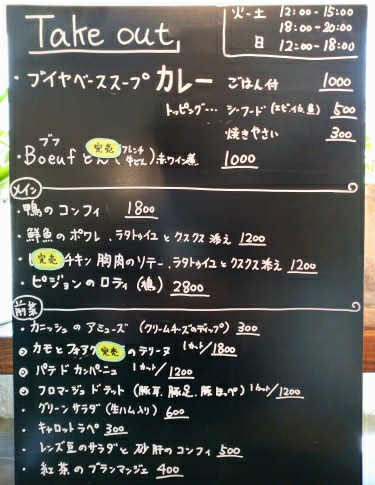 Take out
火-土 12:00-15:00
18:00-20:00
日 12:00-18:00
・ブイヤベーススープ カレー ごはん付 1000
トッピング… シーフード(エビ,イカ,魚) 500
焼きやさい 300
ブフ
・Boeuf どん 完売 フレンチ牛どん)赤ワイン煮 1000
メイン
・鴨のコンフィ 1800
・鮮魚のポワレ、ラタトゥイユとクスクス添え 1200
・完売 チキン胸肉のソテー、ラタトゥイユとクスクス添え 1200
・ピジョンのロティ(鳩) 2800
前菜
・カニッシュのアミューズ (クリームチーズのディップ) 300
カモとフォアグ 完売 のテリーヌ 1カット/1800
パテドカンパーニュ 1カット/1200
フロマージュドテット (豚耳、豚足、豚ほっぺ) 1カット/1200
・グリーンサラダ(生ハム入り) 600
・キャロットラペ 300
・レンズ豆のサラダと砂肝のコンフィ 500
・紅茶のブランマンジェ 400